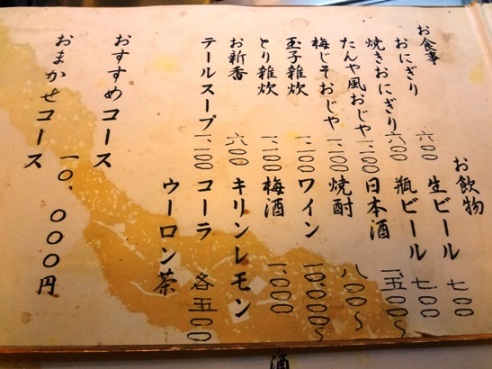 お食事
おにぎり 六〇〇
焼きおにぎり 六〇〇
たんや風おじや 一、二〇〇
梅じそおじや 一、二〇〇
玉子雑炊 一、二〇〇
とり雑炊 一、二〇〇
お新香 六〇〇
テールスープ 一、二〇〇
おすすめコース
おまかせコース 一〇、〇〇〇円
お飲物
生ビール 七〇〇
瓶ビール 七〇〇
日本酒 一、五〇〇〜
焼酎 八〇〇〜
ワイン 一〇、〇〇〇〜
梅酒 一、〇〇〇
キリンレモン
コーラ 各五〇〇
ウーロン茶
酒